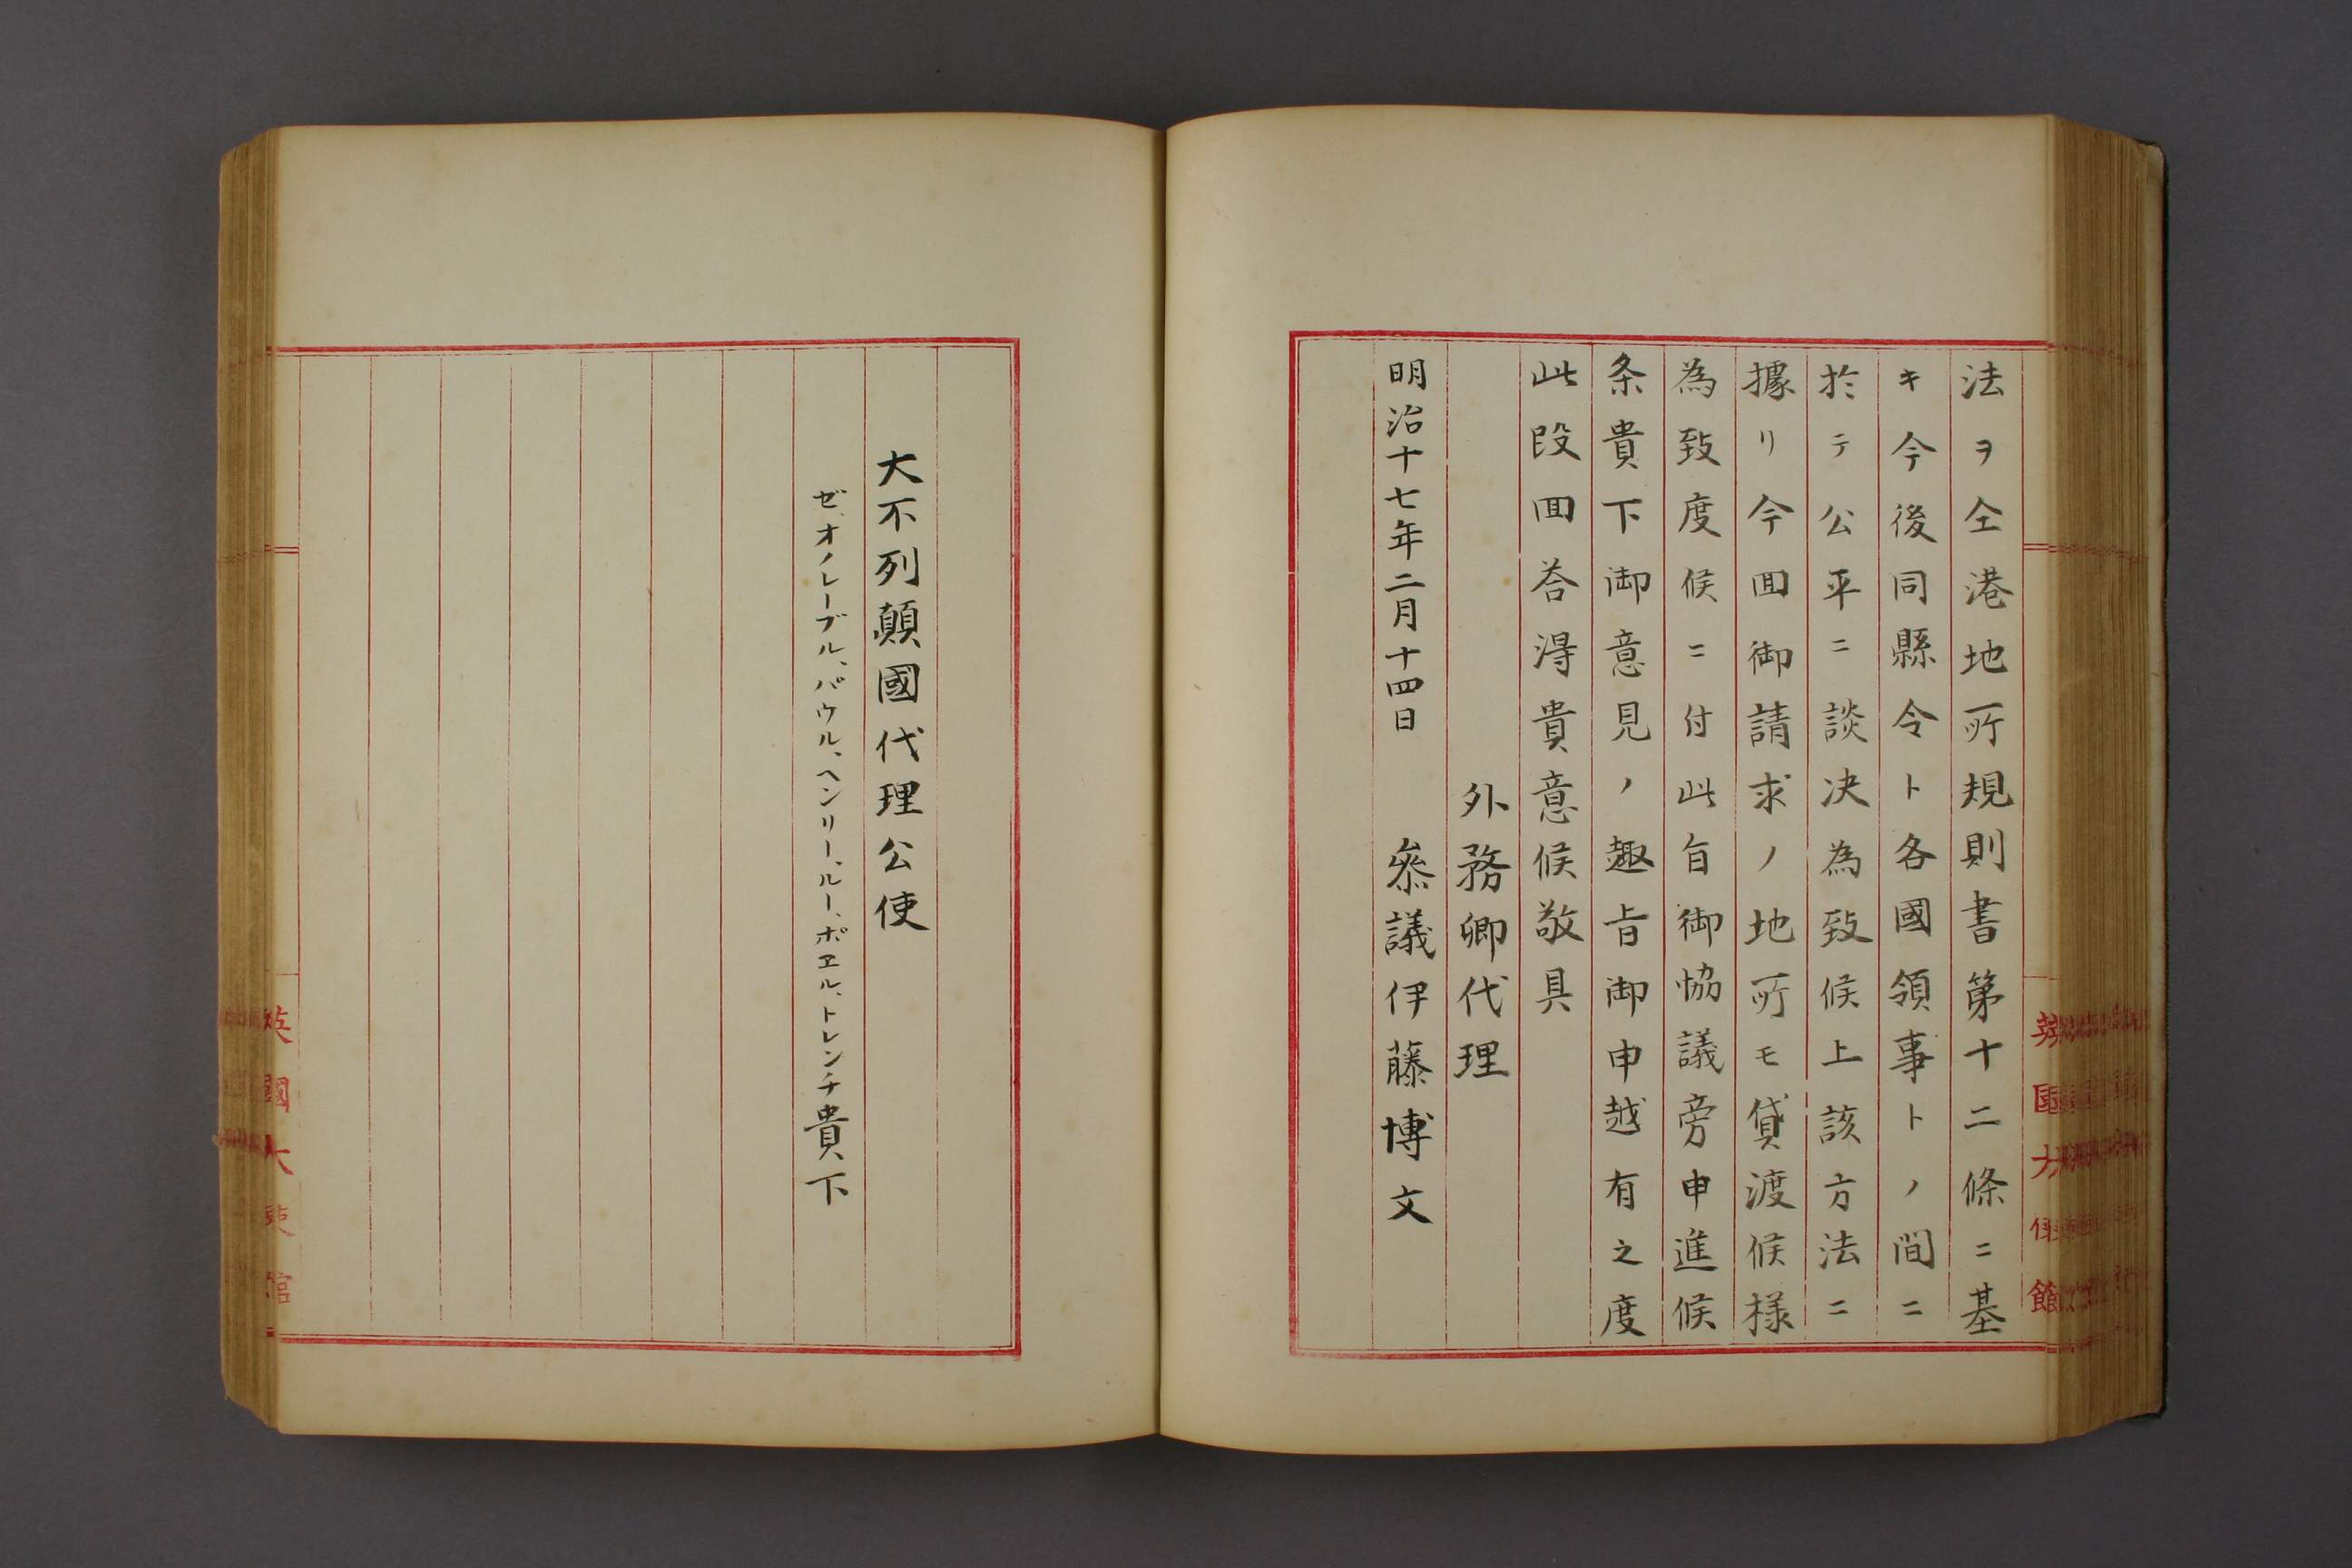 法ヲ仝港地所規則書第十二條ニ基
キ今後同縣令ト各國領事トノ間ニ
於テ公平ニ談决為致候上該方法ニ
據リ今回御請求ノ地所モ貸渡候様
為致度候ニ付此旨御協議旁申進候
条貴下御意見ノ趣旨御申越有之度
此段回答得貴意候敬具
外務卿代理
明治十七年二月十四日 叅議伊藤博文
英國大使館
大不列顛國代理公使
ゼ、オノレーブル、パウル、ヘンリー、ルー、ポエル、トレンチ貴下
英國大使館